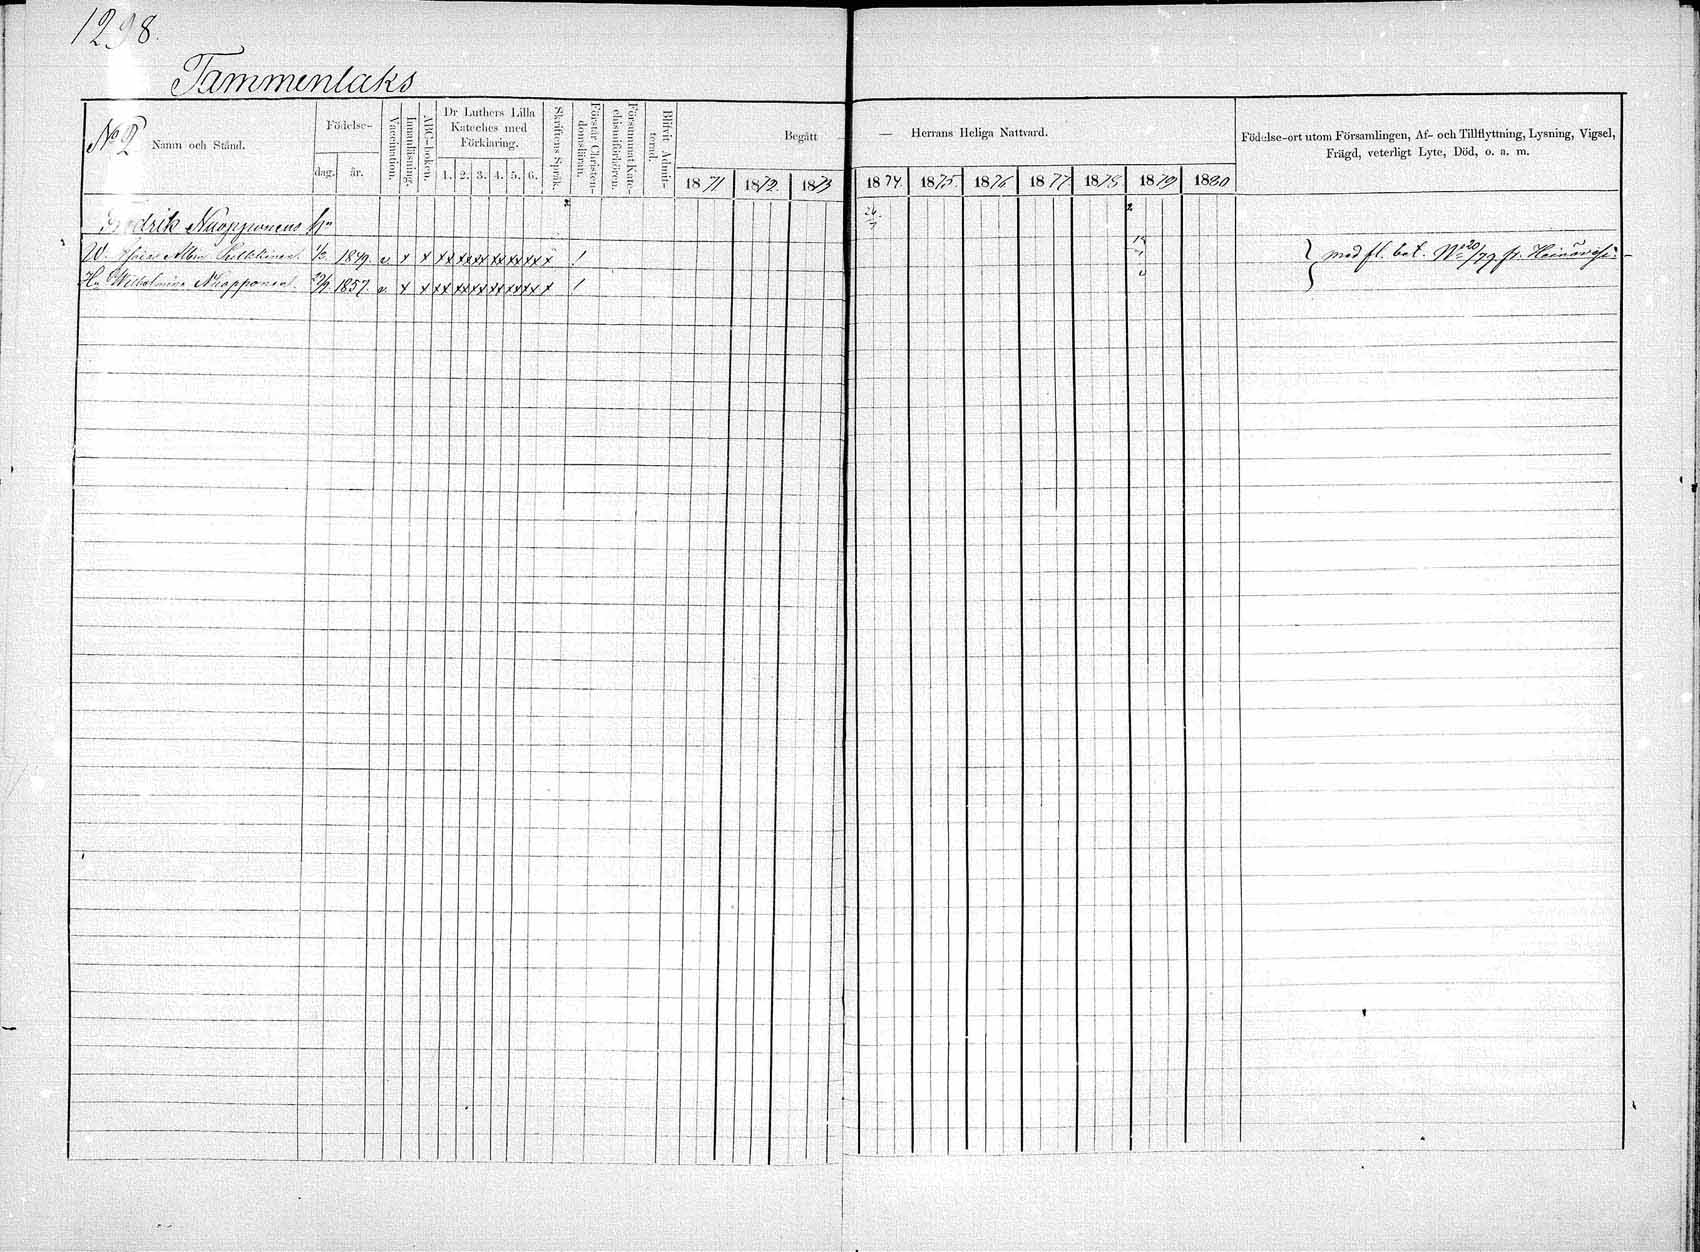 1298.
Tammenlaks
No 2
Namn och Stånd.
Födelse-
dag.
år.
Vaccination.
Innanläsning.
ABC-boken.
Dr Luthers Lilla
Kateches med
Förklaring.
1. 2. 3. 4. 5. 6.
Skriftens Språk.
Förstår Christen-
domsläran.
Försummat Kate-
chismiförhören.
Blifvit Admit-
terad.
Begått — Herrans Heliga Nattvard.
1871 1872. 1873 1874. 1875. 1876 1877. 1878 1879 1880
Födelse-ort utom Församlingen, Af- och Tillflyttning, Lysning, Vigsel,
Frägd, veterligt Lyte, Död, o. a. m.
Fredrik Nuopponens
W. Albin 1849. v. x x xx xx xx xx xx xx x !
med fl. bet. No 20/79 fr. Heinävesi
Wilhelmina Nuopponen 1857. v. x x xx xx xx xx xx xx x !